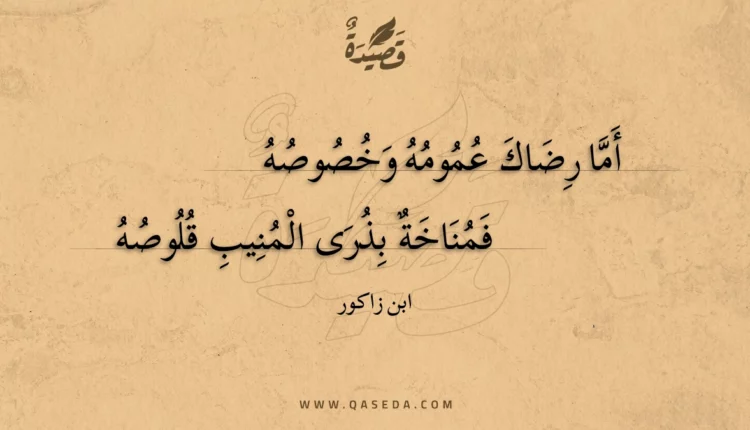 قَصِيدَةٌ
أَمَّا رِضَاكَ عُمُومُهُ وَخُصُوصُهُ
فَمُنَاخَةٌ بِذُرَى الْمُنِيبِ قُلُوصُهُ
ابن زاكور
WWW.QASEDA.COM